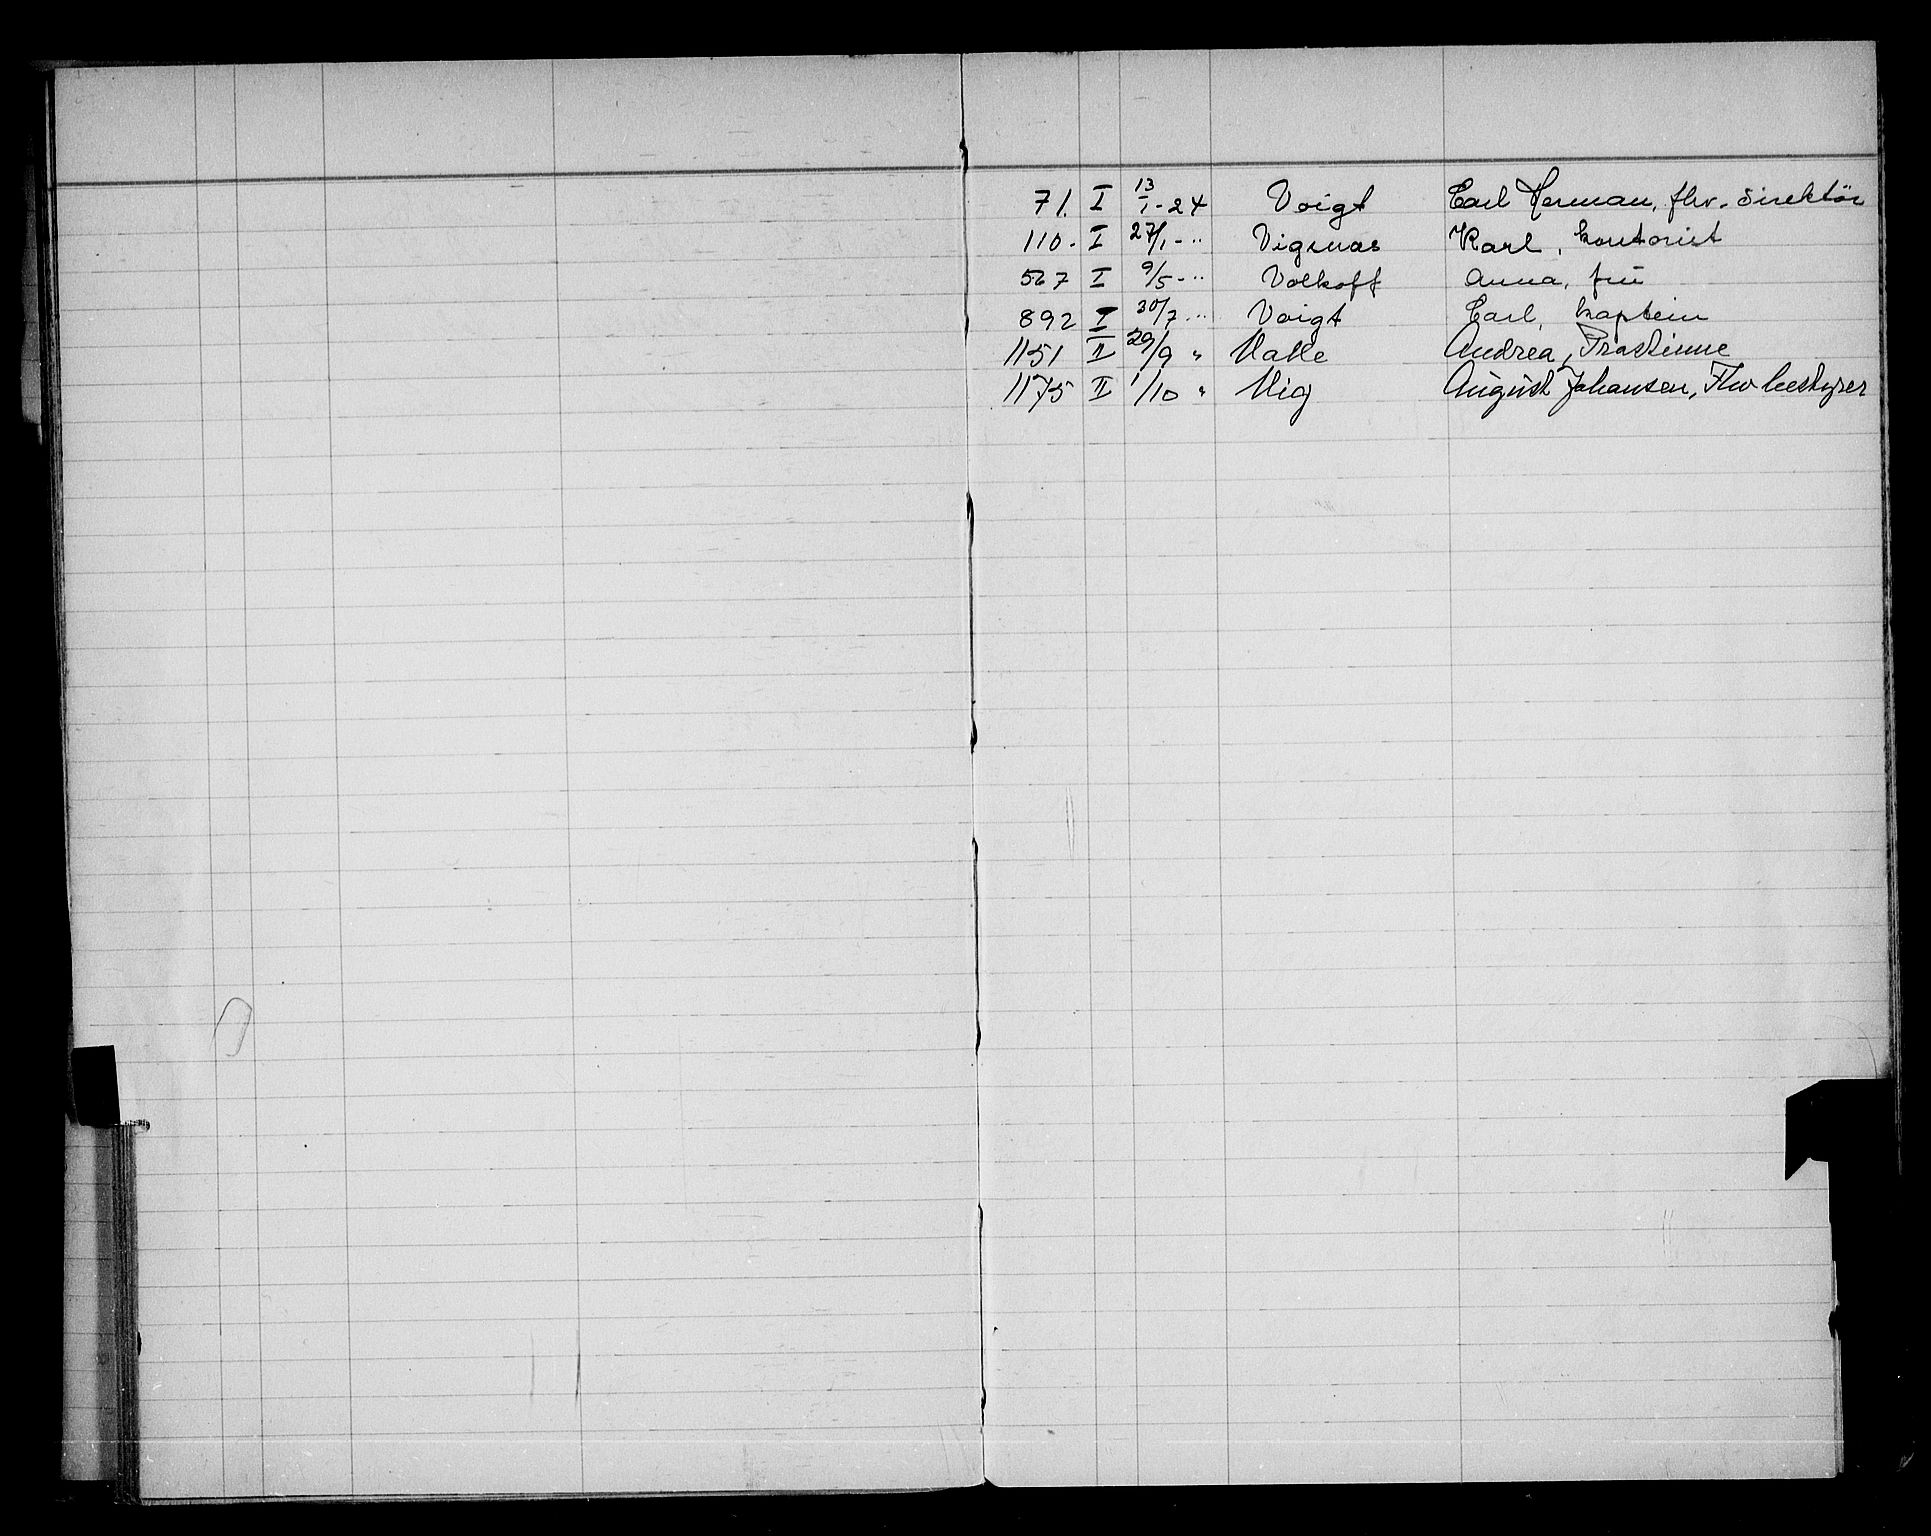 71. I 13/1-24 Voigt Carl Herman, fhv. direktör
110. I 27/1-" Vigenæs Karl, kontorist
567 I 9/5-" Volkoff Anna, frú
892 I 30/7 " Voigt Carl, kaptein
1151 II 29/9 " Valle Andrea,
1175 II 1/10 " Vig August Johansen, Fhv bestyrer